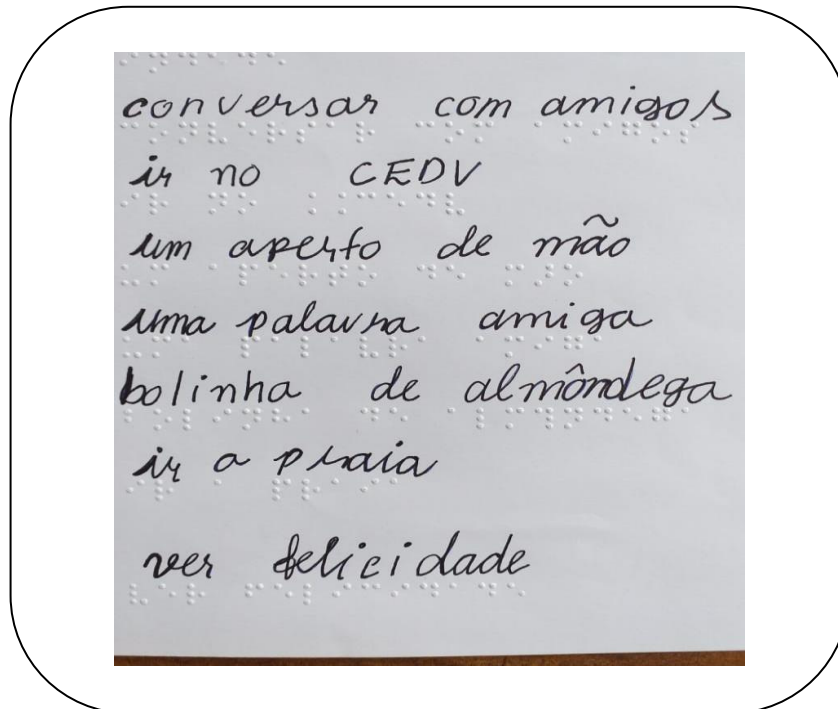 conversar com amigos
ir no CEDV
um aperto de mão
uma palavra amiga
bolinha de almôndega
ir a praia
ver felicidade